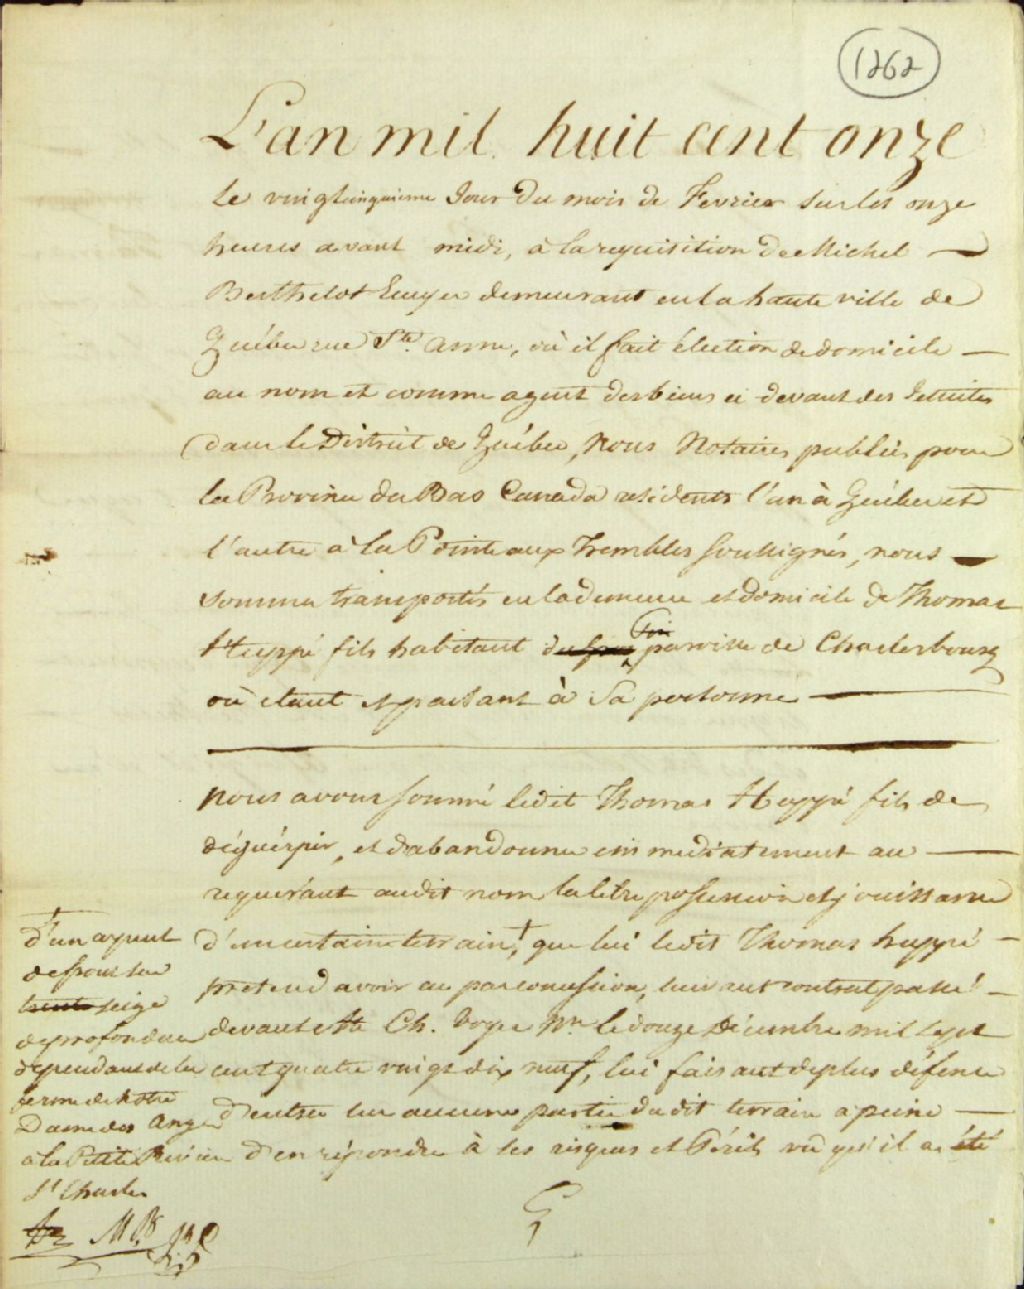 1262
L'an mil huit cent onze
le vingtcinquieme Jour du mois de Fevrier sur les onze
heures avant midi, à la requisition de Michel
Berthelot Ecuyer demeurant en la haute ville de
Québec rue Ste. Anne, où il fait élection de domicile
au nom et comme agent des biens ci devant des Jesuites
dans le District de Québec, Nous Notaires publics pour
la Province du Bas Canada residents l'un à Québec et
l'autre à la Pointe aux Trembles soussignés, nous
sommes transportés en la demeure et domicile de Thomas
Huppé fils habitant paroisse de Charlesbourg
où étant et parlant à sa personne
nous avons sommé ledit Thomas Huppé fils de
déguérpir, et d'abandonner immediatement au
requerant audit nom la libre possession et jouissance
d'un certain terrain,+ que lui ledit Thomas huppé
pretend avoir eu par concession, suivant contrat passé
devant Mtre Ch. Voyer Nre le douze Décembre mil sept
cent quatre vingt dix neuf, lui faisant de plus défense
d'entrer sur aucune partie du dit terrain a peine
d'en répondre à ses risques et Périls vû qu'il a été
+
d'un arpent
de front sur
trente seize
de profondeur
dépendant de la
ferme de Notre
Dame des Anges
à la Petite Rivière
St Charles
MB